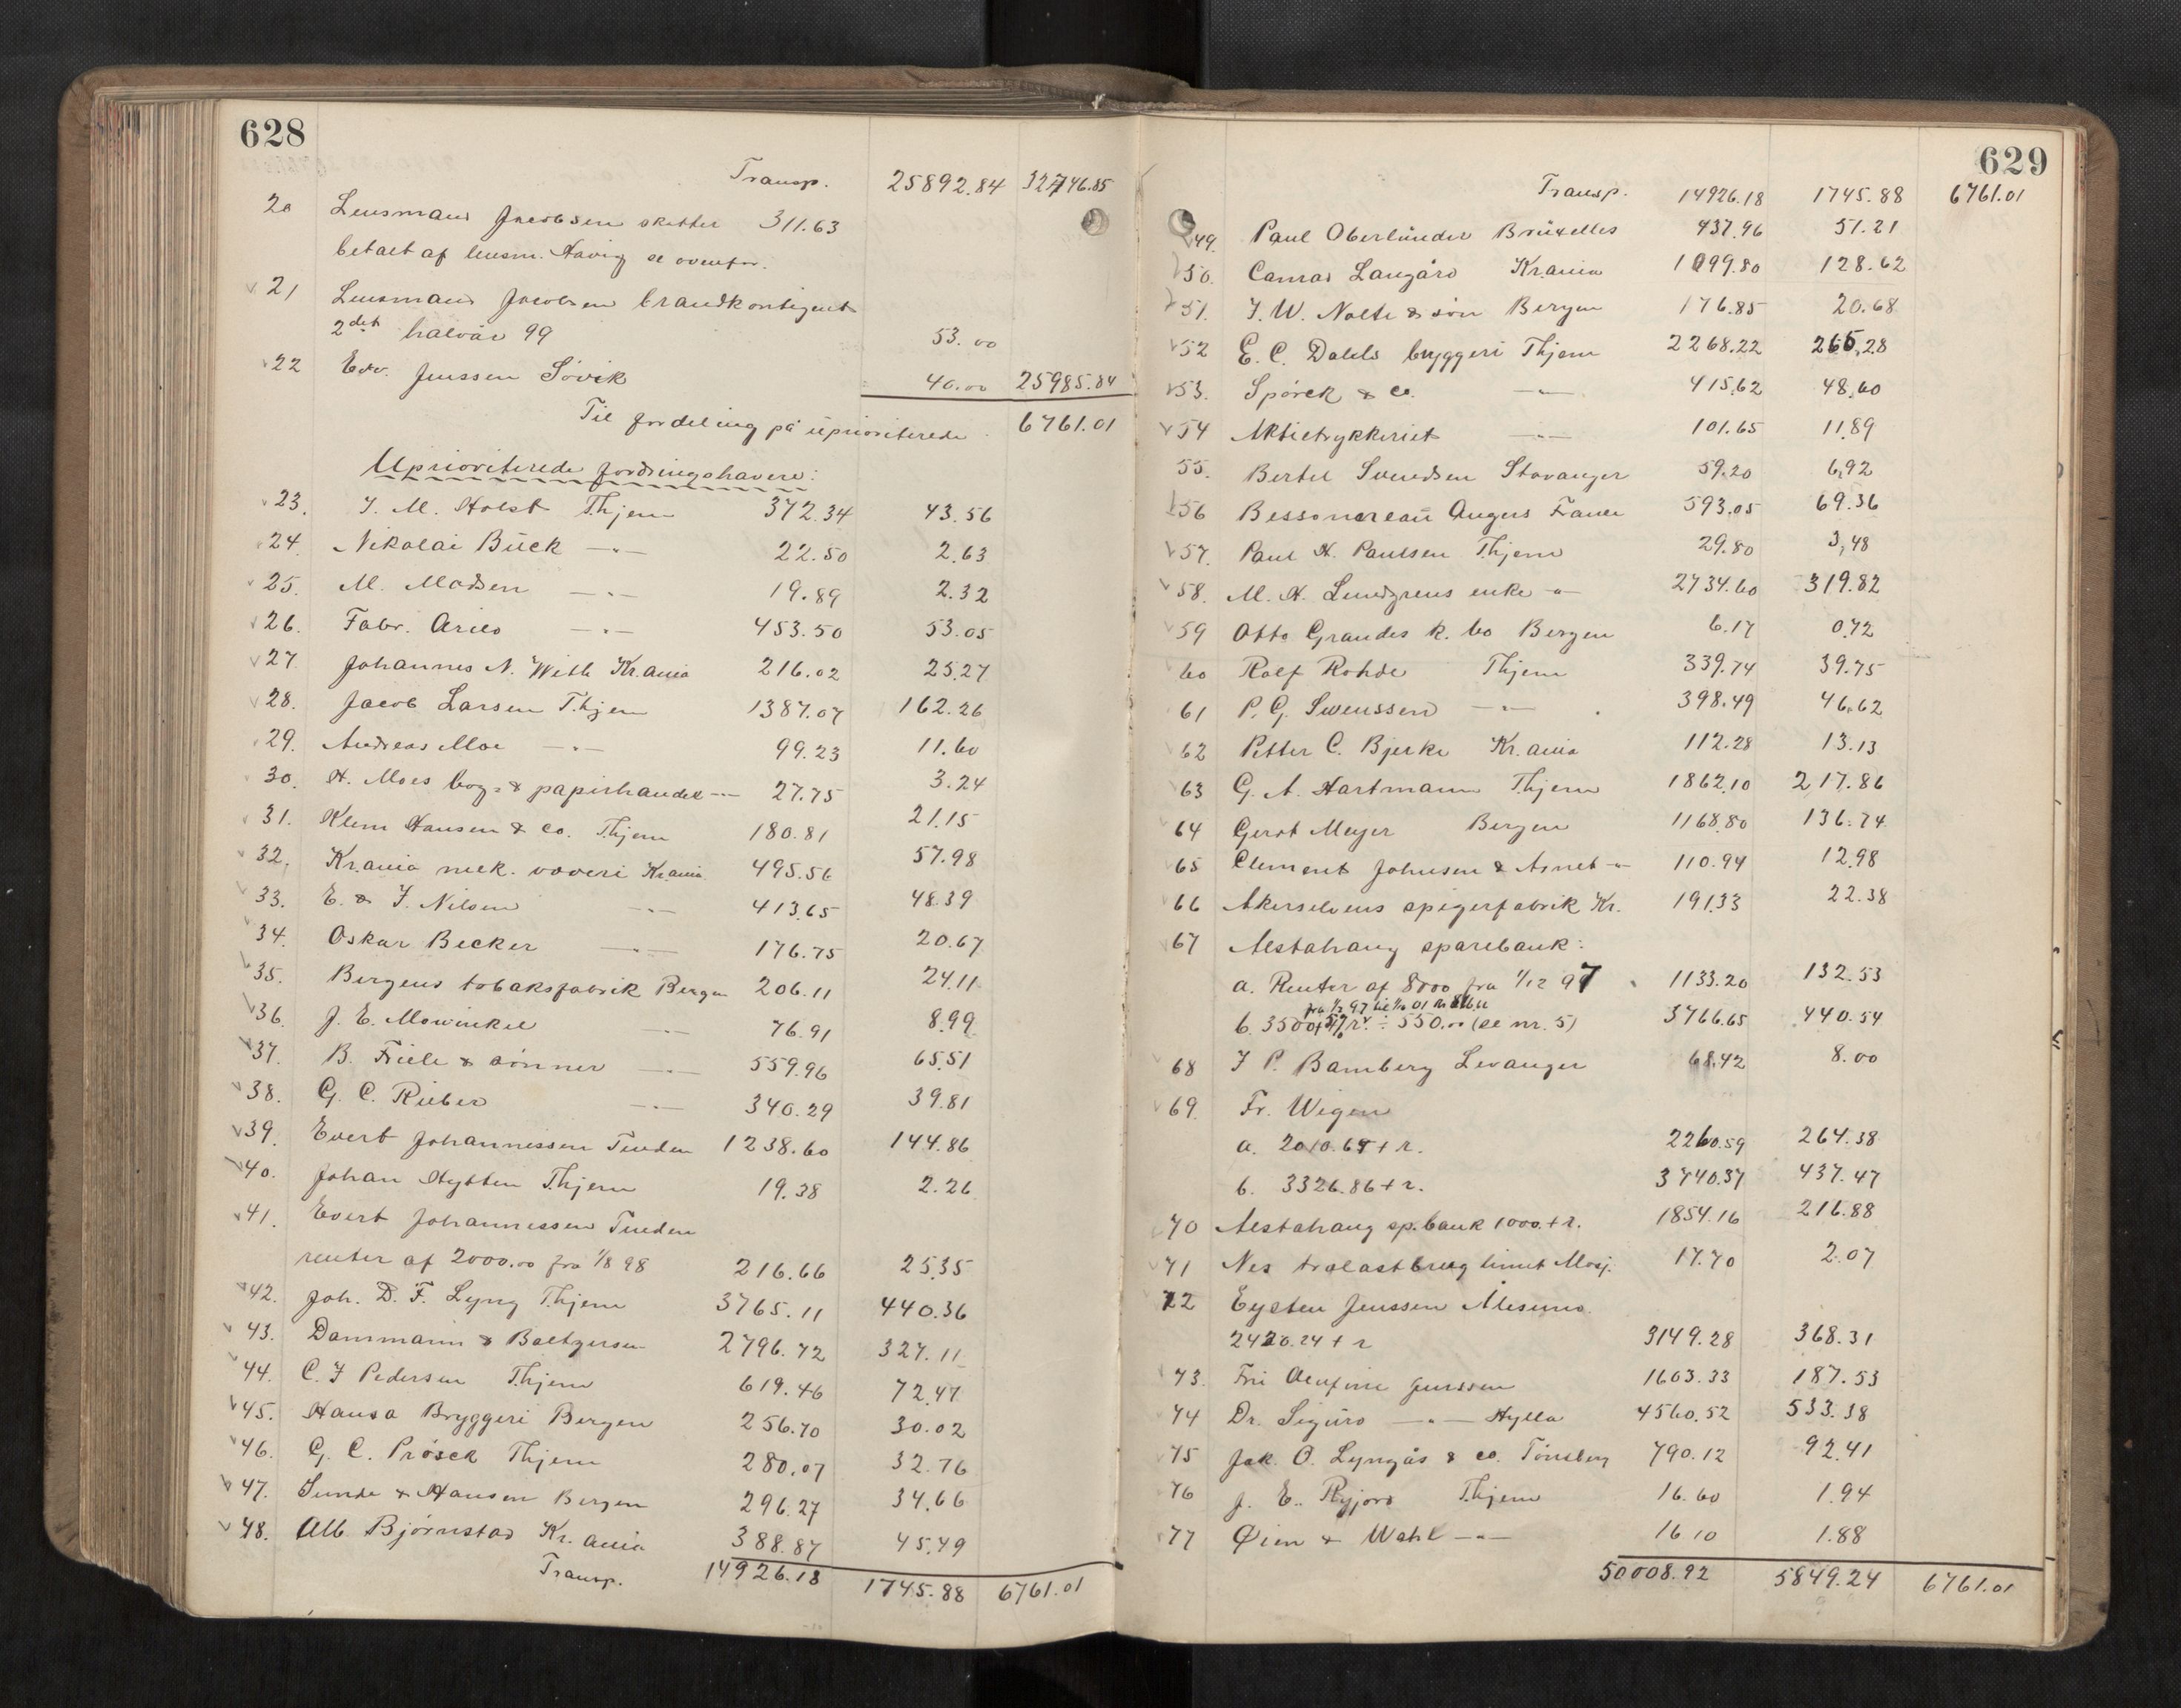 628
Transp. 25892.84 32746.85
20 Lensmand Jacobsen skatter 311.63
betalt af lensm. Havig se ovenfor.
21 Lensmand Jacobsen brandkontigent
2det halvår 99 53.00
22 Edv. Jenssen Søvik 40.00 25985.84
Til fordeling på uprioriterede 6761.01
Uprioriterede fordringshavere:
23. I. M. Holst Thjem 372.34 43.56
24. Nikolai Buck —"— 22.50 2.63
25. M. Madsen —"— 19.89 2.32
26. Fabr. Arild —"— 453.50 53.05
27. Johannes N. With Kr.ania 216.02 25.27
28. Jacob Larsen Thjem 1387.07 162.26
29. Andreas Moe —"— 99.23 11.60
30. H. Moes bog- & papirhandel —"— 27.75 3.24
31. Klem Hansen & co. Thjem 180.81 21.15
32. Kr.ania mek. væveri Kr.ania 495.56 57.98
33. E. & I. Nilsen —"— 413.65 48.39
34. Oskar Becker —"— 176.75 20.67
35. Bergens tobaksfabrik Bergen 206.11 24.11
36. J. E. Mowinkel —"— 76.91 8.99
37. B. Friele & sønner —"— 559.96 65.51
38. G. C. Rieber —"— 340.29 39.81
39. Evert Johannessen Tenden 1238.60 144.86
40. Johan Hytten Thjem 19.38 2.26
41. Evert Johannessen Tenden
renter af 2000.00 fra 1/8 98 216.66 25.35
42. Joh. D. F. Lyng Thjem 3765.11 440.36
43. Dammann & Baltzersen 2796.72 327.11
44. C. F Pedersen Thjem 619.46 72.47
45. Hansa Bryggeri Bergen 256.70 30.02
46. G. C. Prøsch Thjem 280.07 32.76
47. Sunde & Hansen Bergen 296.27 34.66
48. Alb Bjørnstad Kr.ania 388.87 45.49
Transp. 14926.18 1745.88 6761.01
629
Transp. 14926.18 1745.88 6761.01
49. Paul Oberlünder Brüxelles 437.96 51.21
50. Conrad Langård Kr.ania 1099.80 128.62
51. I. W. Nolte & søn Bergen 176.85 20.68
52 E. C. Dahls bryggeri Thjem 2268.22 265.28
53. Spørck & co. —"— 415.62 48.60
54 Aktietrykkeriet —"— 101.65 11.89
55. Bertel Svendsen Stavanger 59.20 6.92
56 Bessonereau Angers 593.05 69.36
57. Paul H. Paulsen Thjem 29.80 3.48
58. M. H. Lundgrens enke —"— 2734.60 319.82
59 Otto Grandes k. bo Bergen 6.17 0.72
60 Rolf Rohde Thjem 339.74 39.75
61 P. G. Swenssen —"— 398.49 46.62
62 Petter C. Bjerke Kr.ania 112.28 13.13
63 G. A. Hartmann Thjem 1862.10 217.86
64 Gerdt Meyer Bergen 1168.80 136.74
65 Clement Johnsen & Asmet —"— 110.94 12.98
66 Akerselvens spigerfabrik Kr. 191.33 22.38
67 Alstahaug sparebank:
a. Renter af 8000 fra 1/12 97 1133.20 132.53
b. 3500 + 5% r. ÷ 550.00 (se nr. 5) 3766.65 440.54
68 I P. Bamberg Levanger 68.42 8.00
69. Fr. Wigen
a. 2010.65 + r. 2260.59 264.38
b. 3326.86 + r. 3740.37 437.47
70 Alstahaug sp.bank 1000. + r. 1854.16 216.88
71 Nes trælastbrug limit Mosj. 17.70 2.07
72 Eysten Jenssen Alesund.
2420.24 + r 3149.28 368.31
73. Jenssen 1603.33 187.53
74 Dr. Sigurd —"— Hylla 4560.52 533.38
75 Jak. O. Lyngås & co. Tønsberg 790.12 92.41
76 J. E. Ryjord Thjem 16.60 1.94
77 Øien & Wahl —"— 16.10 1.88
50008.92 5849.24 6761.01